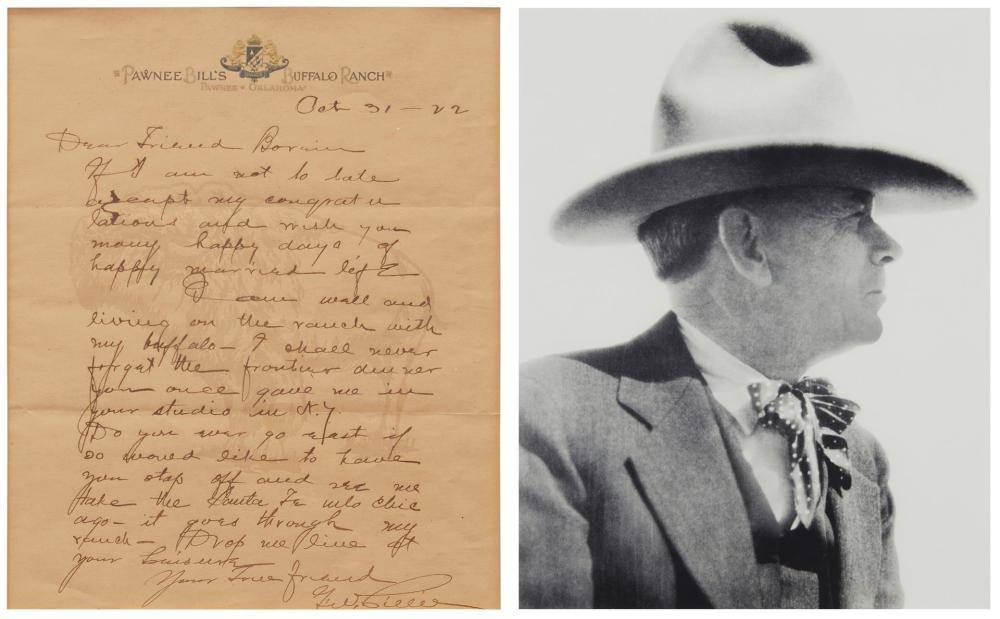 PAWNEE BILL'S BUFFALO RANCH
PAWNEE • OKLAHOMA
Oct 31 — 22
Dear Friend Borein
If I am not to late
accept my congratu
lations and wish you
many happy days of
happy married life
I am well and
living on the ranch with
my buffalo — I shall never
forget the frontier dinner
you once gave me in
your studio in N.Y.
Do you ever go east if
so would like to have
you stop off and see me
take the Santa Fe into chic
ago — it goes through my
ranch — Drop me line at
your Leisure
Your True friend
G.W. Lillie